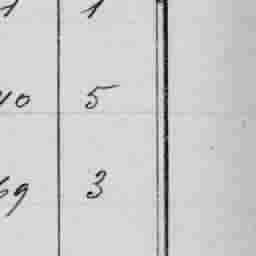 1 1
40 5
69 3